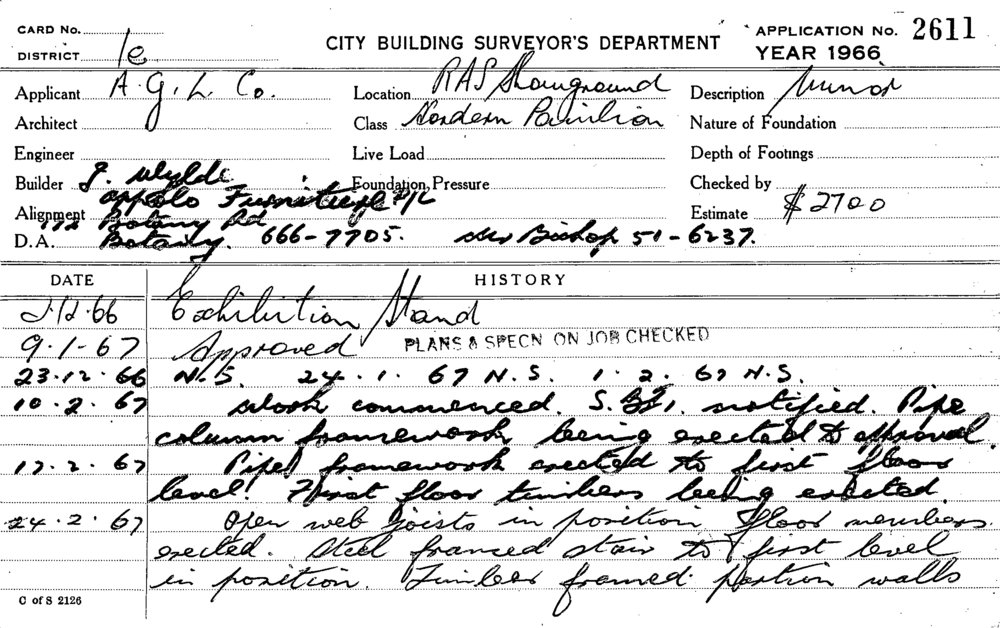 CARD No.
DISTRICT 10
CITY BUILDING SURVEYOR'S DEPARTMENT
APPLICATION No. 2611
YEAR 1966
Applicant A.G.L. Co.
Location RAS Showground
Description Minor
Architect
Class Hordern Pavilion
Nature of Foundation
Engineer
Live Load
Depth of Footings
Builder J. Wylde
Foundation Pressure
Checked by
Appolo Furniture P/L
Alignment 172 Botany Rd
Estimate $2700
D.A. Botany. 666-7705. Mr Bishop 51-6237.
DATE HISTORY
2.12.66 Exhibition Stand
9.1.67 Approved PLANS & SPECN ON JOB CHECKED
23.12.66 N.S. 24.1.67 N.S. 1.2.67 N.S.
10.2.67 Work commenced. notified. Pipe
column framework being erected to approval
17.2.67 Pipe framework erected to first floor
level. First floor timbers being erected.
24.2.67 Open web joists in position floor members
erected. Steel framed stair to first level
in position. Timber framed partion walls
C of S 2126